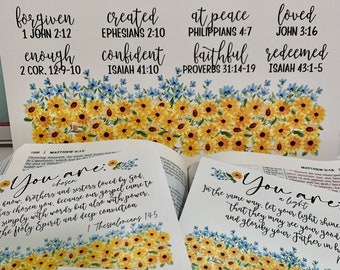 forgiven created at peace loved
1 JOHN 2:12 EPHESIANS 2:10 PHILIPPIANS 4:7 JOHN 3:16
enough confident faithful redeemed
2 COR. 12:9-10 ISAIAH 41:10 PROVERBS 31:14-19 ISAIAH 43:1-5
MATTHEW
You are:
chosen
know, brothers and sisters loved by God,
has chosen you, because our gospel came to
simply with words but also with
the Holy Spirit and deep conviction.
1 Thessalonians 1:4-5
MATTHEW
You are:
a light
In the same way, let your light shine
that they may see your good
and glorify your Father in